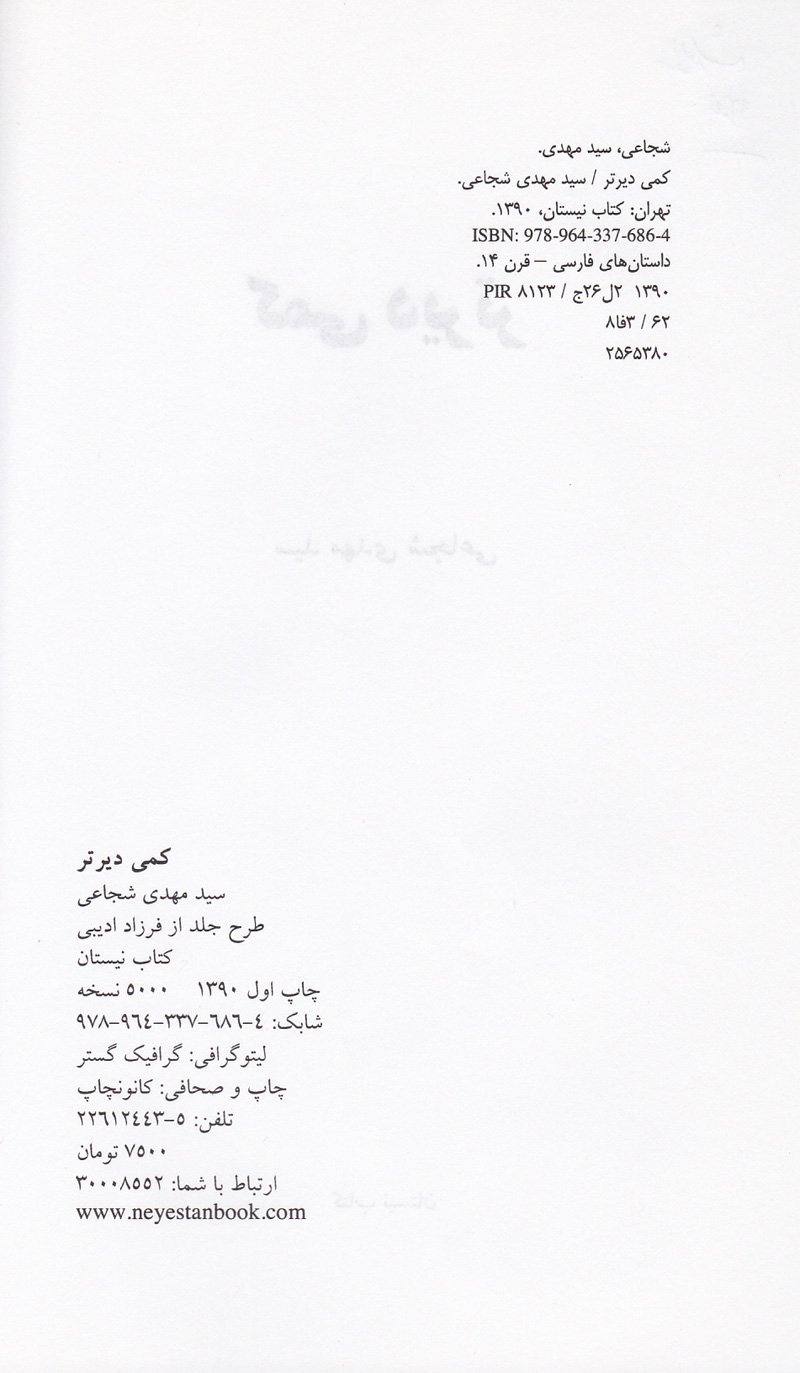 شجاعی، سید مهدی.
کمی دیرتر / سید مهدی شجاعی.
تهران: کتاب نیستان، ۱۳۹۰.
ISBN: 978-964-337-686-4
داستان‌های فارسی – قرن ۱۴.
۱۳۹۰ ۲ل۲۶ج / PIR ۸۱۲۳
۶۲ / ۳فا۸
۲۵۶۵۳۸۰
کمی دیرتر
سید مهدی شجاعی
طرح جلد از فرزاد ادیبی
کتاب نیستان
چاپ اول ۱۳۹۰ ۵۰۰۰ نسخه
شابک: ٤-٦٨٦-٣٣٧-٩٦٤-٩٧٨
لیتوگرافی: گرافیک گستر
چاپ و صحافی: کانونچاپ
تلفن: ٥-٢٢٦١٢٤٤٣
٧٥٠٠ تومان
ارتباط با شما: ٣٠٠٠٨٥٥٢
www.neyestanbook.com